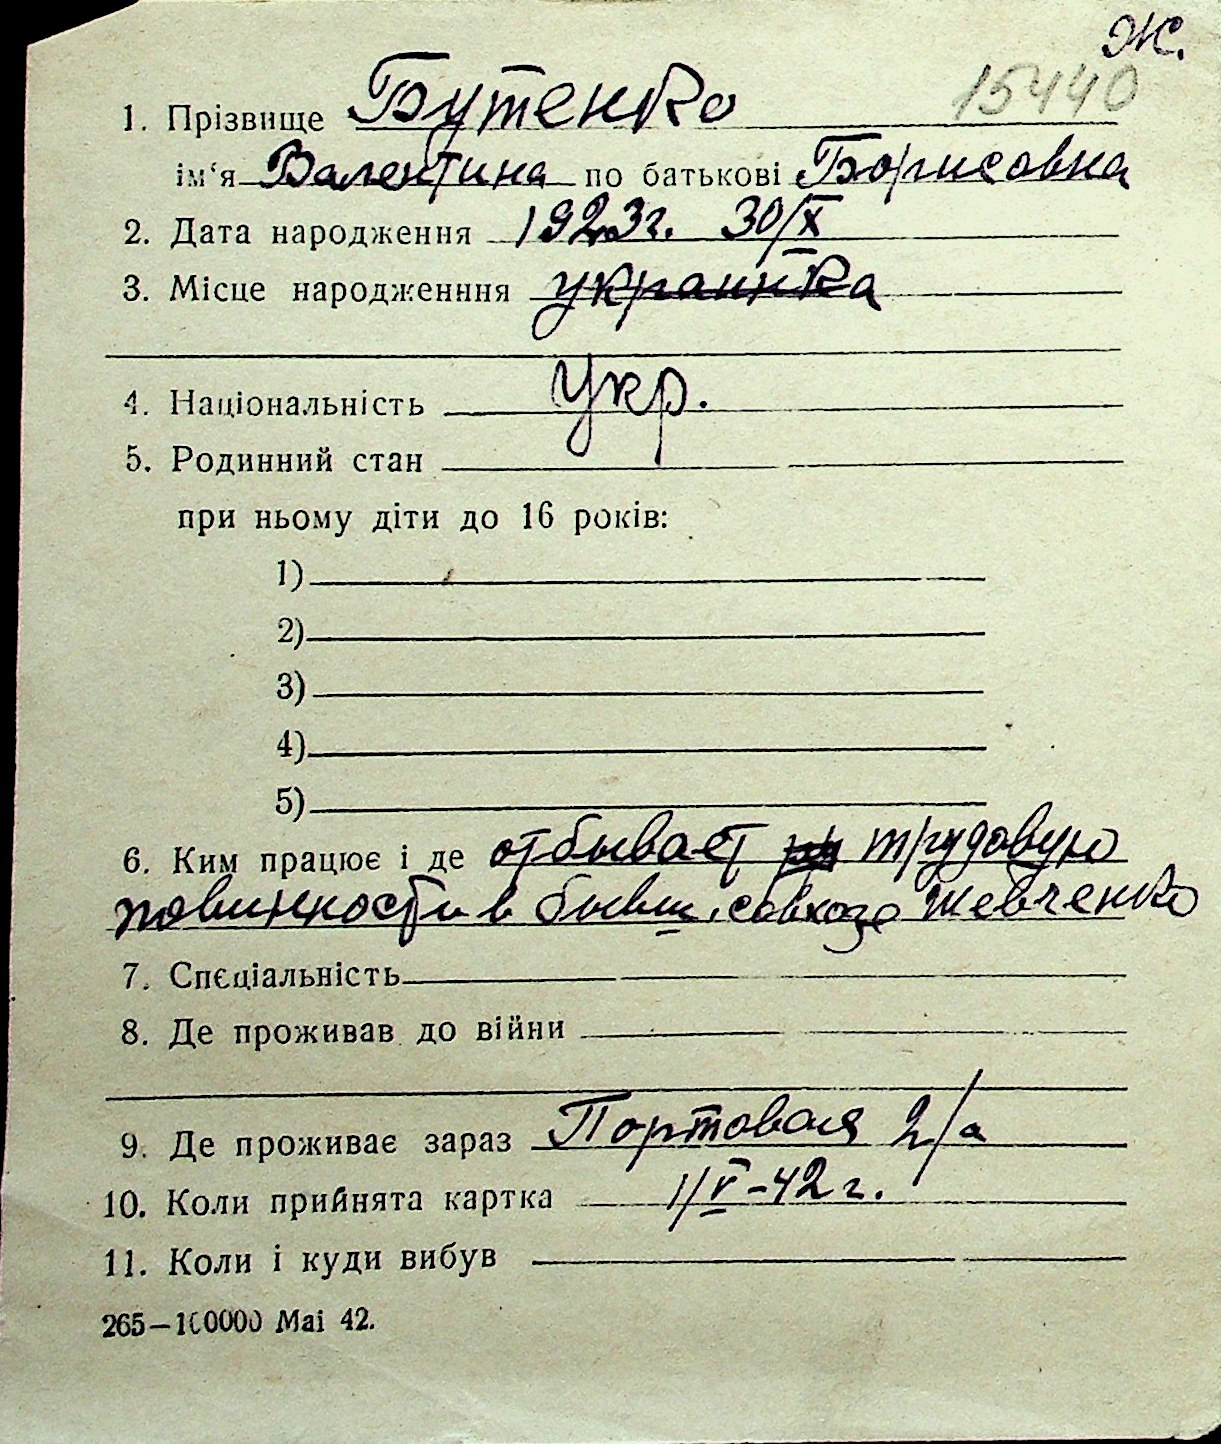 Ж.
15440
1. Прізвище Бутенко
ім‘я Валентина по батькові Борисовна
2. Дата народження 1923г. 30/X
3. Місце народженння украинка
4. Національність Укр.
5. Родинний стан
при ньому діти до 16 років:
1)
2)
3)
4)
5)
6. Ким працює і де отбывает трудовую
повинности в бывш. совхозе Шевченко
7. Спєціальність
8. Де проживав до війни
9. Де проживає зараз Портовая 2/а
10. Коли прийнята картка 1/V-42 г.
11. Коли і куди вибув
265—100000 Маі 42.